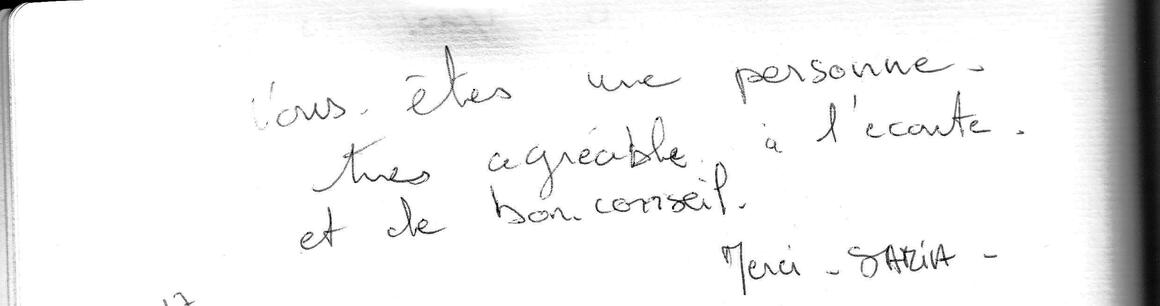 Vous êtes une personne.
tres agréable. à l'ecoute.
et de bon conseil.
Merci - SARIA -
17